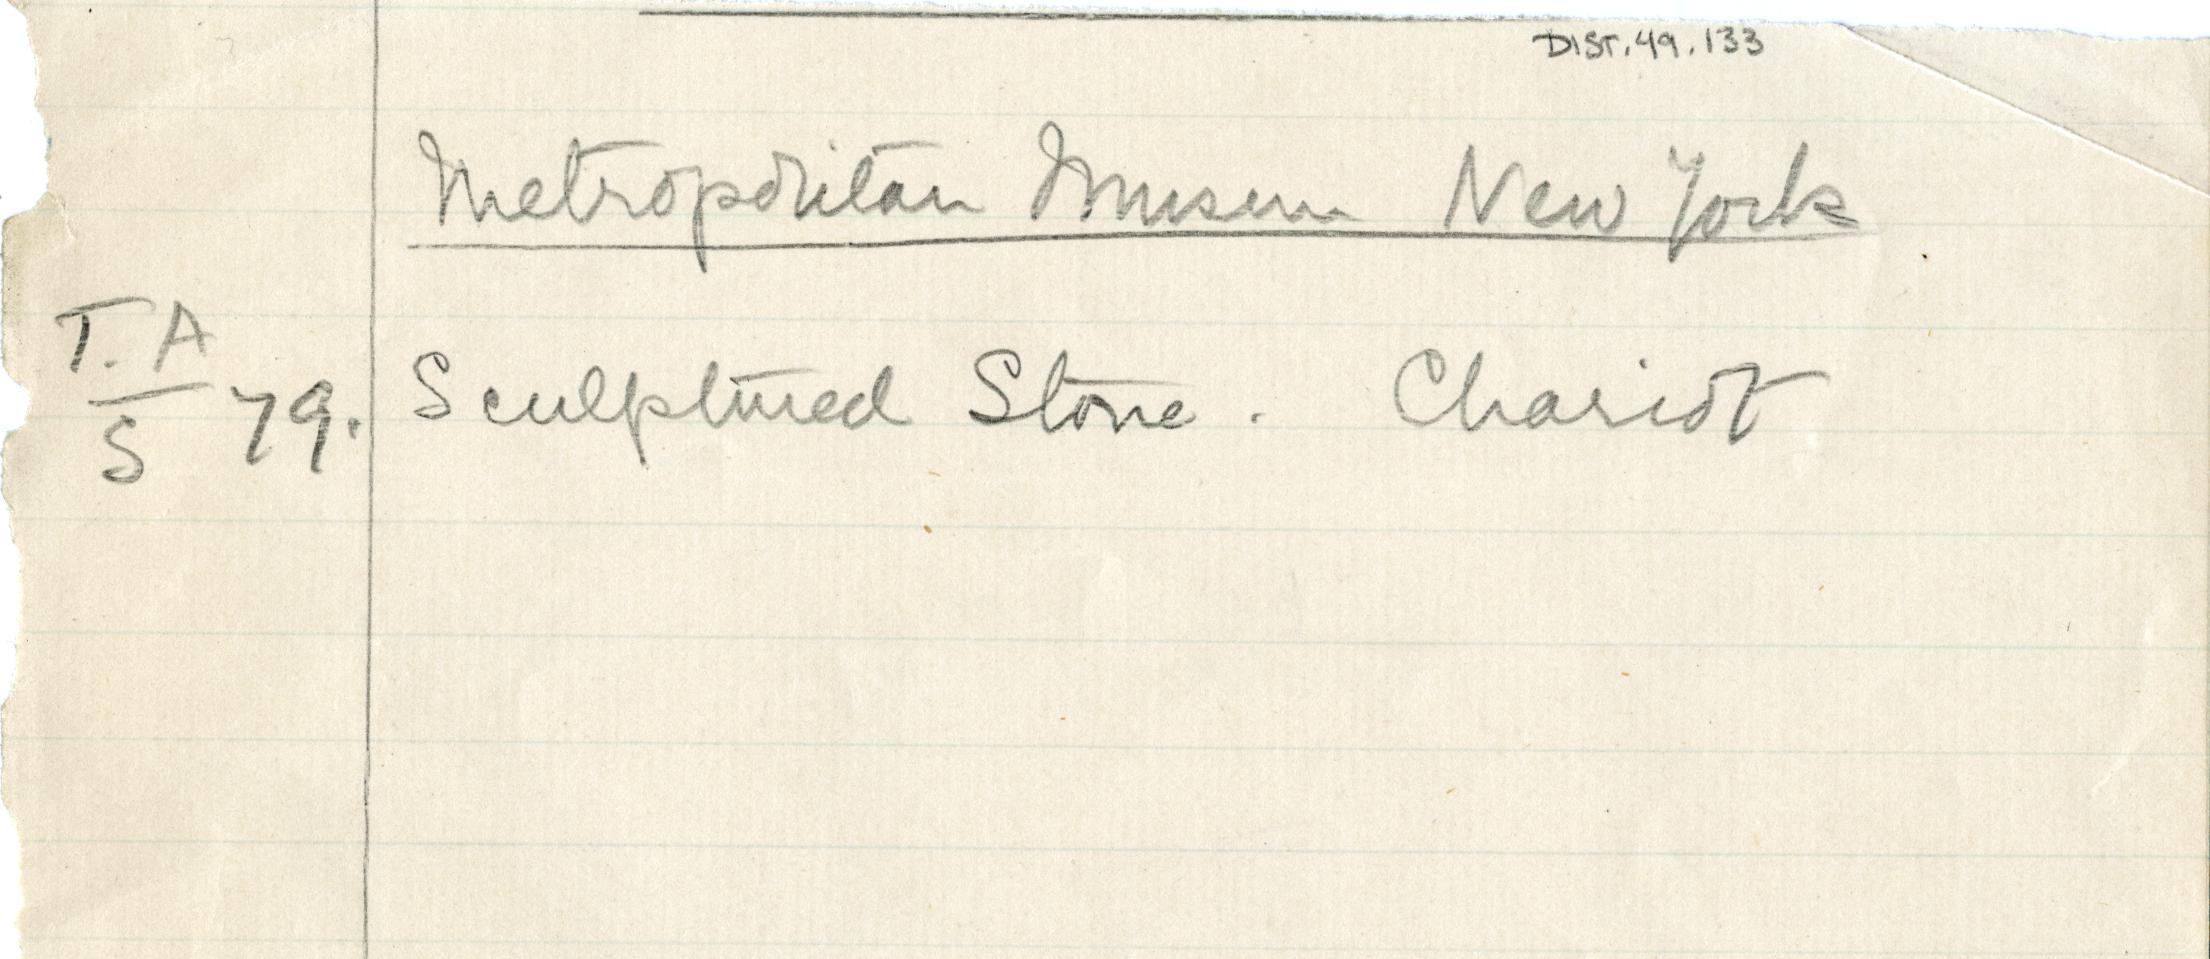 DIST.49.133
Metropolitan Museum New York
T. A
S 79. Sculptured Stone. Chariot